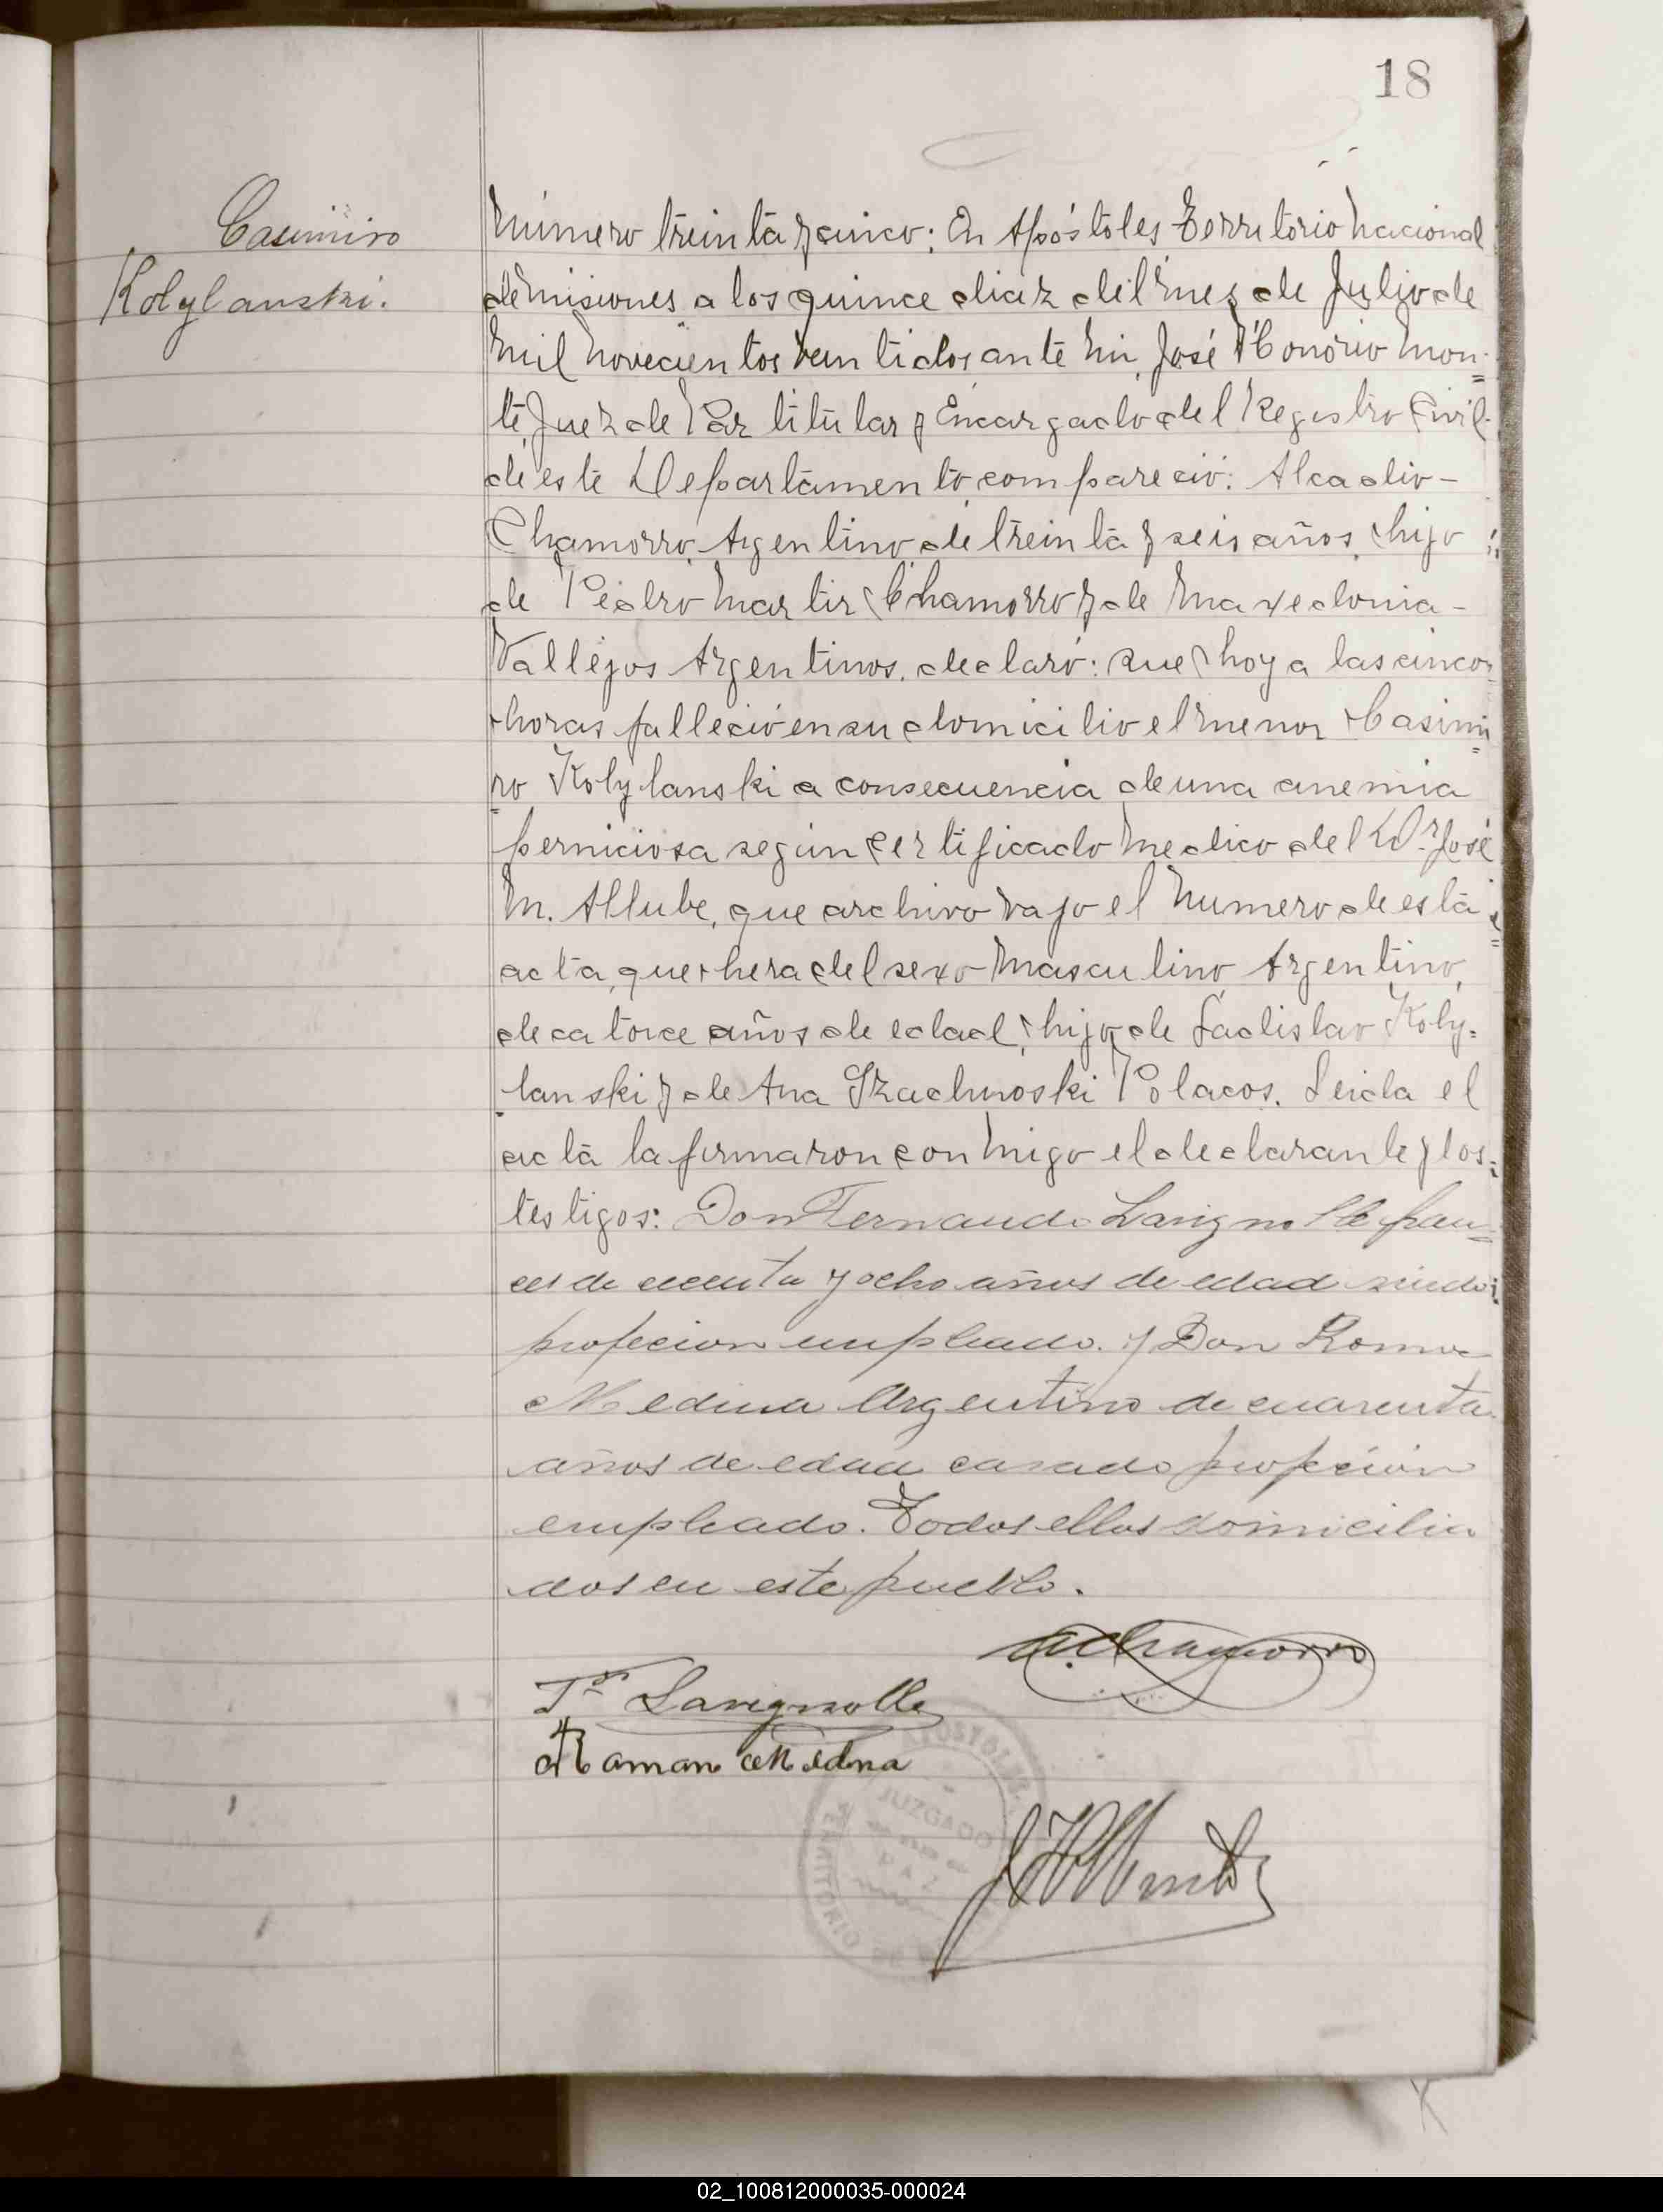 18
Casimiro
Kolylanski.
Número treinta y cinco: En Apóstoles Territorio Nacional
de Misiones a los quince diaz del mes de Julio de
mil novecientos veintidos ante mi, José Honorio Mon-
te, Juez de Paz titular y Encargado del Registro Civil
de este Departamento, compareció: Alcadio-
Chamorro, Argentino de treinta y seis años, hijo
de Pedro Martir Chamorro y de Maxedonia-
Vallejos Argentinos, declaró: que hoy a las cinco
horas falleció en su domicilio el menor Casimi
ro Kolylanski a consecuencia de una anemia
perniciosa según certificado medico del Dr. José
M. Allube, que archivo vajo el numero de esta
acta, que hera del sexo masculino, Argentino,
de catorce años de edad, hijo de Ladislao Koly=
lanski y de Ana Polacos. Leida el
acta la firmaron conmigo el declarante y los
testigos: Don Fernando Lavignolle fran=
ces de y ocho años de edad viudo
profecion empleado. y Don Roman
Medina Argentino de cuarenta
años de edad casado profecion
empleado. Todos ellos domicilia
dos en este pueblo.
A. Chamorro
F. Lavignolle
Raman Medina
APOSTOLES
JUZGADO
DE
PAZ
TERRITORIO DE
J H Monte
02_100812000035-000024